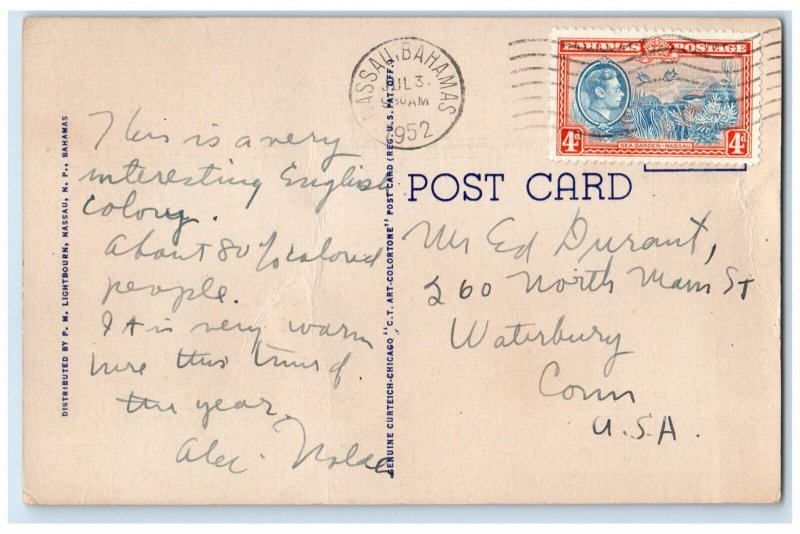 NASSAU, BAHAMAS
JUL 3
30 AM
1952
BAHAMAS POSTAGE
4d
4d
SEA GARDEN-NASSAU
POST CARD
This is a very
interesting English
colony.
About 80% colored
people.
It is very warm
here this time of
the year.
Alec.
Mr Ed Durant,
260 North Main ST
Waterbury
Conn
U.S.A.
DISTRIBUTED BY P. M. LIGHTBOURN, NASSAU, N. P., BAHAMAS
GENUINE CURTEICH-CHICAGO "C.T. ART-COLORTONE" POST CARD (REG. U.S. PAT. OFF.)